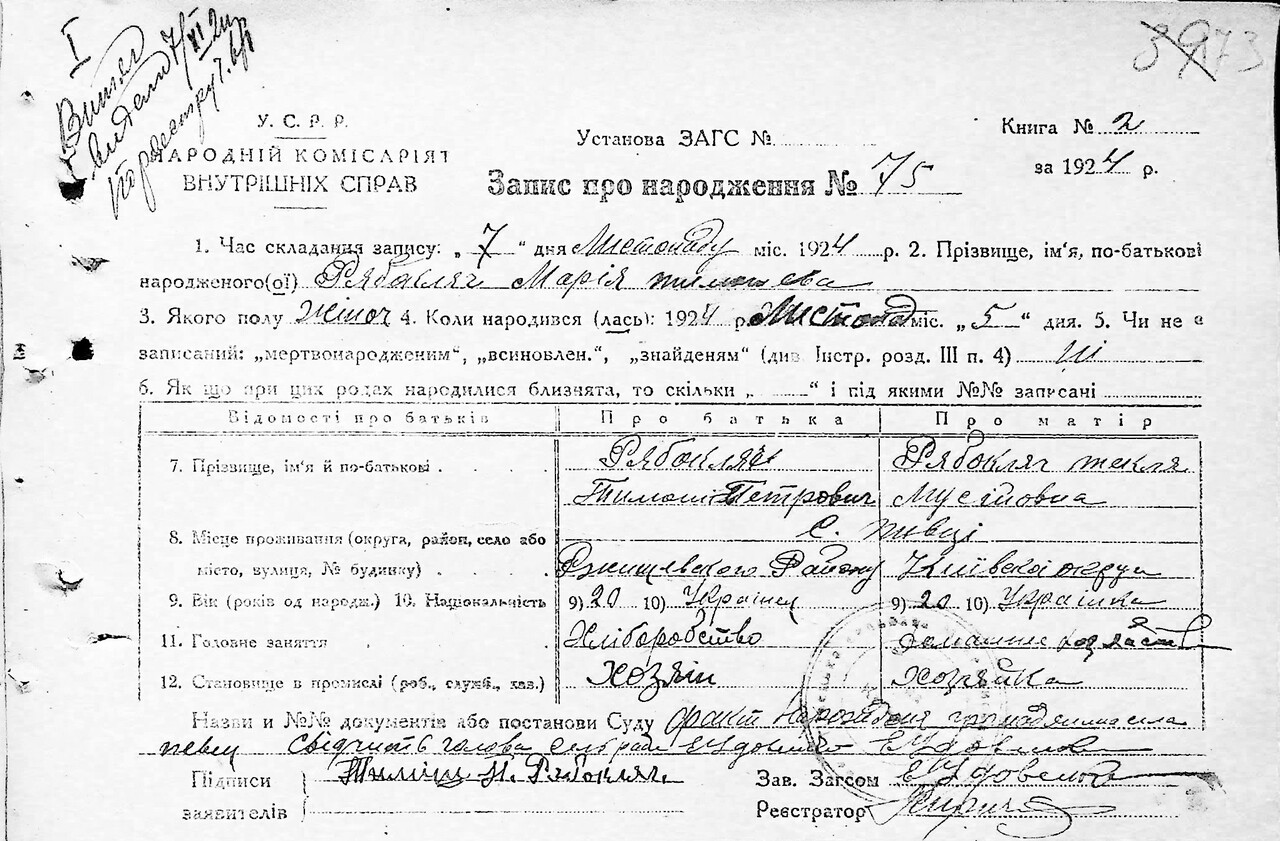 I
Витяг
видали 7/XI 24
3973
У. С. Р. Р.
НАРОДНІЙ КОМІСАРІЯТ
ВНУТРІШНІХ СПРАВ
Установа ЗАГС №
Книга № 2
за 1924 р.
Запис про народження № 75
1. Час складання запису: „ 7 “ дня Листопаду міс. 1924 р. 2. Прізвище, ім'я, по-батькові
народженого(ої) Рябокляч Марія тимошева
3. Якого полу жіноч 4. Коли народився (лась): 1924 р. Листопад міс. „ 5 “ дня. 5. Чи не є
записаний: „мертвонародженим“, „всиновлен.“, „знайденям“ (див. Інстр. розд. III п. 4) ні
6. Як що при цих родах народилися близнята, то скільки „ “ і під якими №№ записані
Відомості про батьків Про батька Про матір
7. Прізвище, ім'я й по-батькові Рябокляч Рябокляч текля
Тимоші Петрович Мусіїовна
с. півці
8. Місце проживання (округа, район, село або
місто, вулиця, № будинку) Ржищевского Району Київскої округи
9. Вік (років од народж.) 10. Національність 9) 20 10) Українец 9) 20 10) Українка
11. Головне заняття Хліборобство домашне
12. Становище в промислі (роб., служб., хаз.) Хозяін Хозяйка
Назви и №№ документів або постанови Суду факт народження громадянина села
певці свідчить голова сельради Удовенко
Підписи
заявителів Тиміш П. Рябокляч
Зав. Загсом Удовенко
Реєстратор